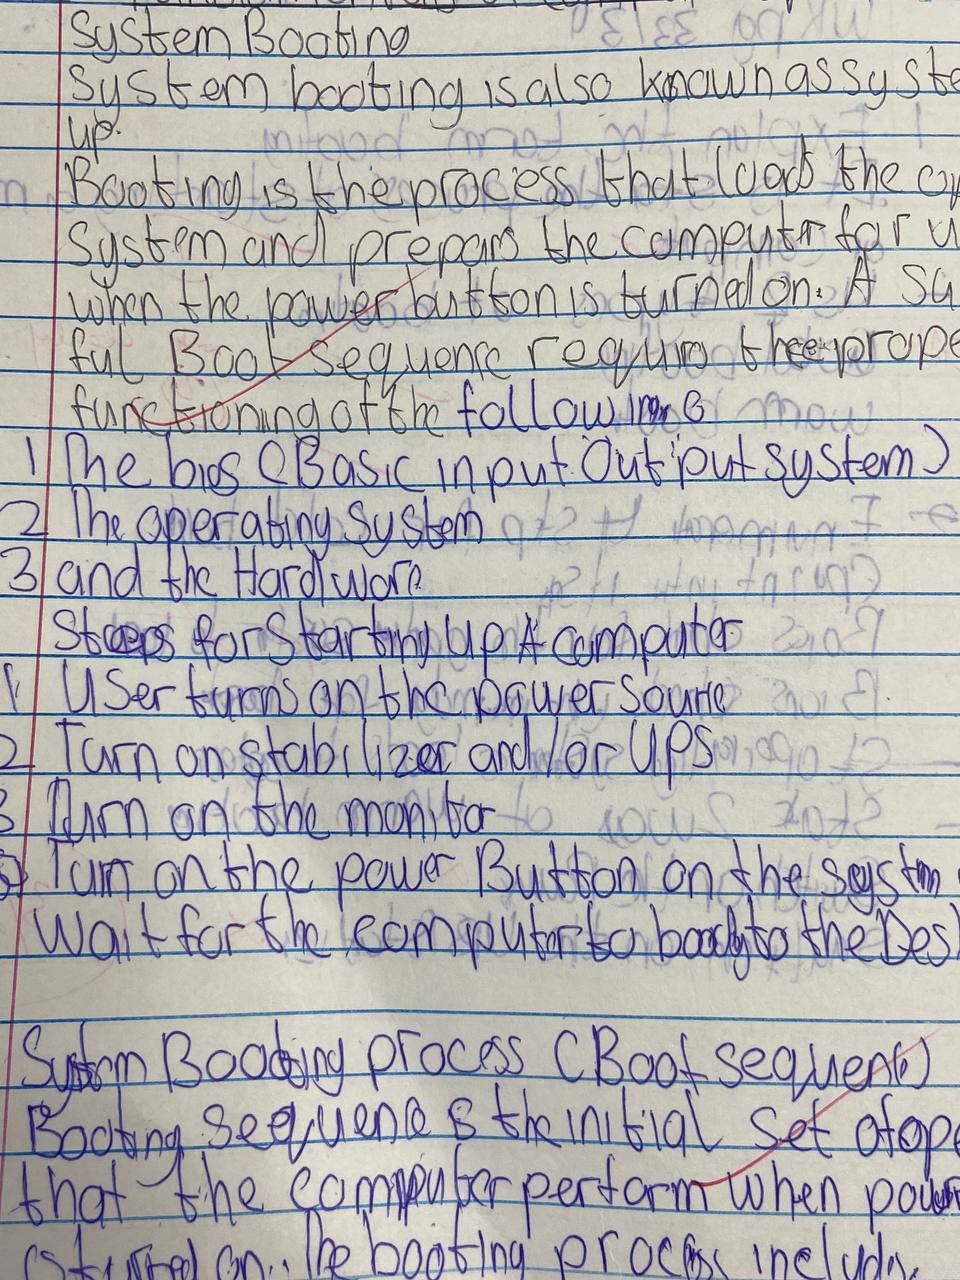 System Booting
System booting is also known as syste
up.
Booting is the process that loads the op
System and prepars the computer for u
when the power button is turned on. A su
ful Boot sequence require the prope
functioning of the following
1 The bios (Basic input Output system)
2 The operating system
3 and the Hardware
Steps for Starting up A computer
1 User turns on the power source
2 Turn on stabilizer and/or UPS
3 Turn on the monitor
Turn on the power Button on the system
Wait for the computer to boot to the Des
System Booting process (Boot sequence)
Booting sequence is the initial set of ope
that the computer perform when power
started on. The booting process include.